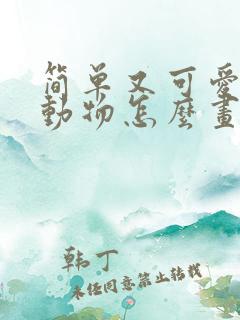 简单又可爱
動物怎麼畫
韩丁
未经同意禁止转载